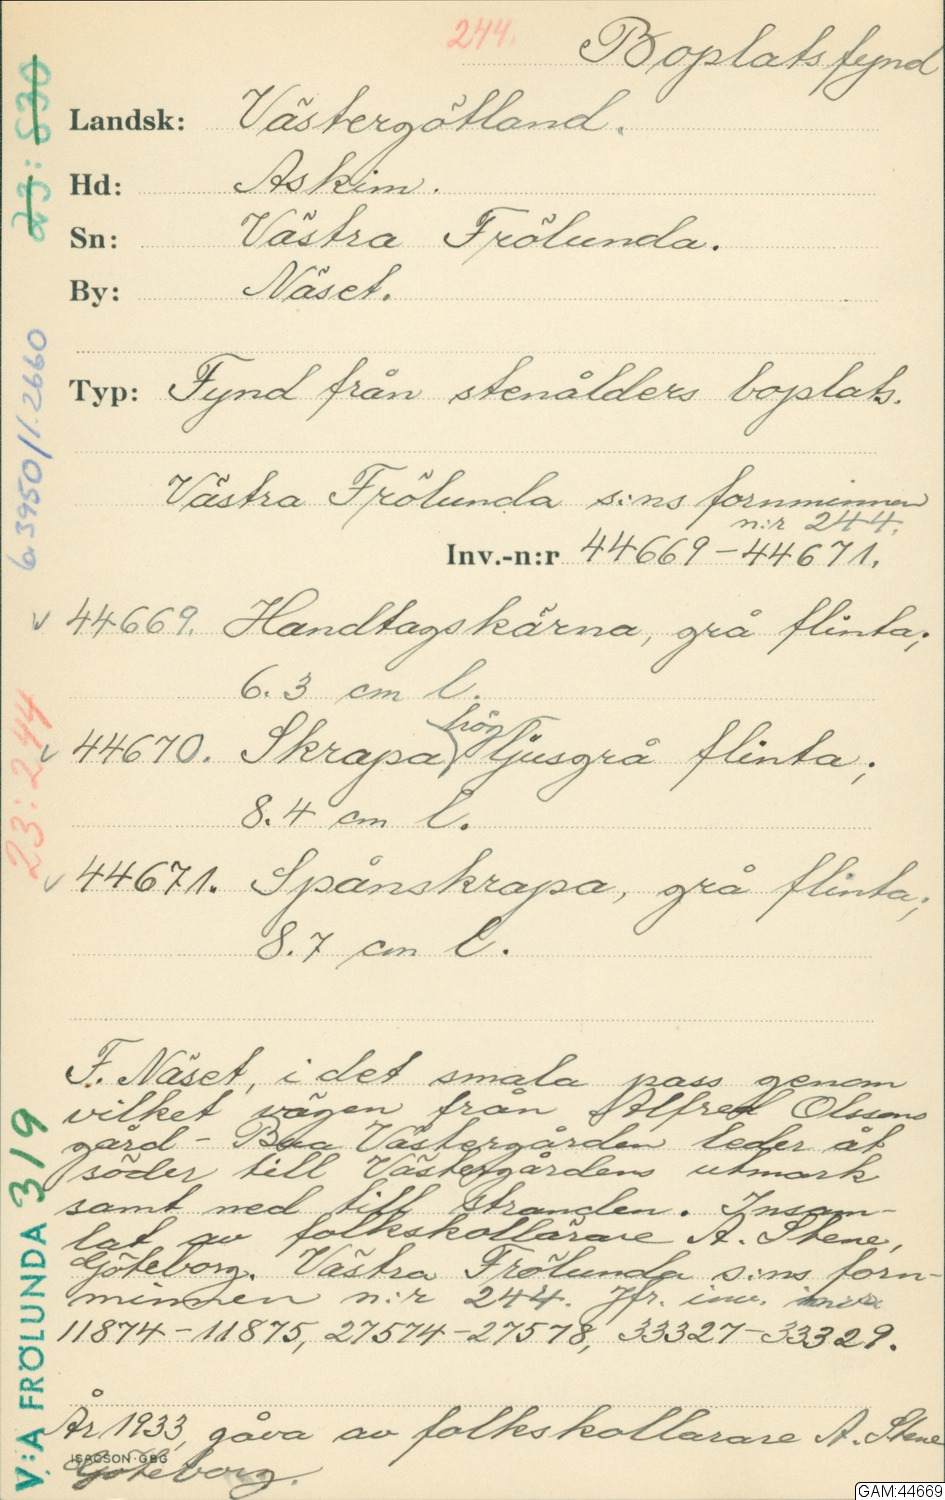 244.
Boplatsfynd
Landsk: Västergötland.
Hd: Askim.
Sn: Västra Frölunda.
By: Näset.
Typ: Fynd från stenålders boplats.
Västra Frölunda s:ns fornminnen
n:r 244.
Inv.-n:r 44669-44671.
v 44669. Handtagskärna, grå flinta;
6.3 cm l.
hög
v 44670. Skrapa, ljusgrå flinta;
8.4 cm l.
v 44671. Spånskrapa, grå flinta;
8.7 cm l.
F. Näset, i det smala pass genom
vilket vägen från Alfred Olssons
gård - Bua Västergården leder åt
söder till Västergårdens utmark
samt ned till stranden. Insam-
lat av folkskollärare A. Stene,
Göteborg. Västra Frölunda s:ns forn-
minnen n:r 244. Jfr. inv.
11874-11875, 27574-27578, 33327-33329.
År 1933, gåva av folkskollärare A. Stene
Göteborg.
ISACSON·GBG
23:530
6.3950/1-2660
23:244
V:A FRÖLUNDA 319
GAM:44669